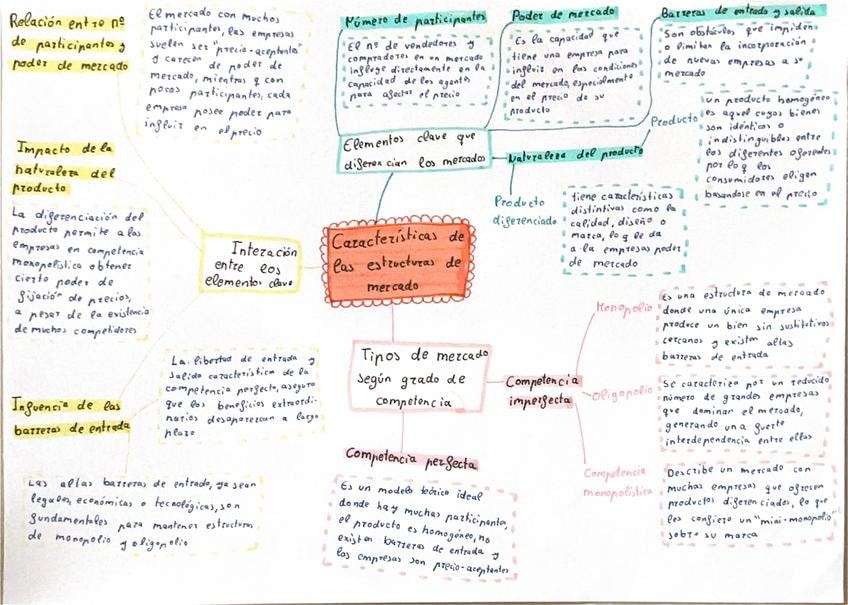 Relación entre nº
de participantes y
poder de mercado
El mercado con muchos
participantes, las empresas
suelen ser "precio-aceptantes"
y carecen de poder de
mercado, mientras q con
pocos participantes, cada
empresa posee poder para
influir en el precio
Número de participantes
El nº de vendedores y
compradores en un mercado
influye directamente en la
capacidad de los agentes
para afectar el precio
Poder de mercado
Es la capacidad que
tiene una empresa para
influir en las condiciones
del mercado, especialmente
en el precio de su
producto
Barreras de entrada y salida
Son obstáculos que impiden
o limitan la incorporación
de nuevas empresas a su
mercado
Elementos clave que
diferencian los mercados
Naturaleza del producto
Producto
un producto homogéneo
es aquel cuyos bienes
son idénticos o
indistinguibles entre
los diferentes oferentes
por lo q los
consumidores eligen
basandose en el precio
Producto
diferenciado
tiene características
distintivas como la
calidad, diseño o
marca, lo q le da
a la empresas poder
de mercado
Impacto de la
naturaleza del
producto
La diferenciación del
producto permite a las
empresas en competencia
monopolística obtener
cierto poder de
fijación de precios,
a pesar de la existencia
de muchos competidores
Interación
entre los
elementos clave
Características de
las estructuras de
mercado
Tipos de mercado
según grado de
competencia
Competencia
imperfecta
Monopolio
Es una estructura de mercado
donde una única empresa
produce un bien sin sustitutivos
cercanos y existen altas
barreras de entrada
Oligopolio
Se caracteriza por un reducido
número de grandes empresas
que dominan el mercado,
generando una fuerte
interdependencia entre ellas
Competencia
monopolística
Describe un mercado con
muchas empresas que ofrecen
productos diferenciados, lo que
les confiere un "mini-monopolio"
sobre su marca
Influencia de las
barreras de entrada
La libertad de entrada y
salida característica de la
competencia perfecta, asegura
que los beneficios extraordi-
narios desaparezcan a largo
plazo
Las altas barreras de entrada, ya sean
legales, económicas o tecnológicas, son
fundamentales para mantener estructuras
de monopolio y oligopolio
Competencia perfecta
Es un modelo teórico ideal
donde hay muchas participantes,
el producto es homogéneo, no
existen barreras de entrada y
las empresas son precio-aceptantes